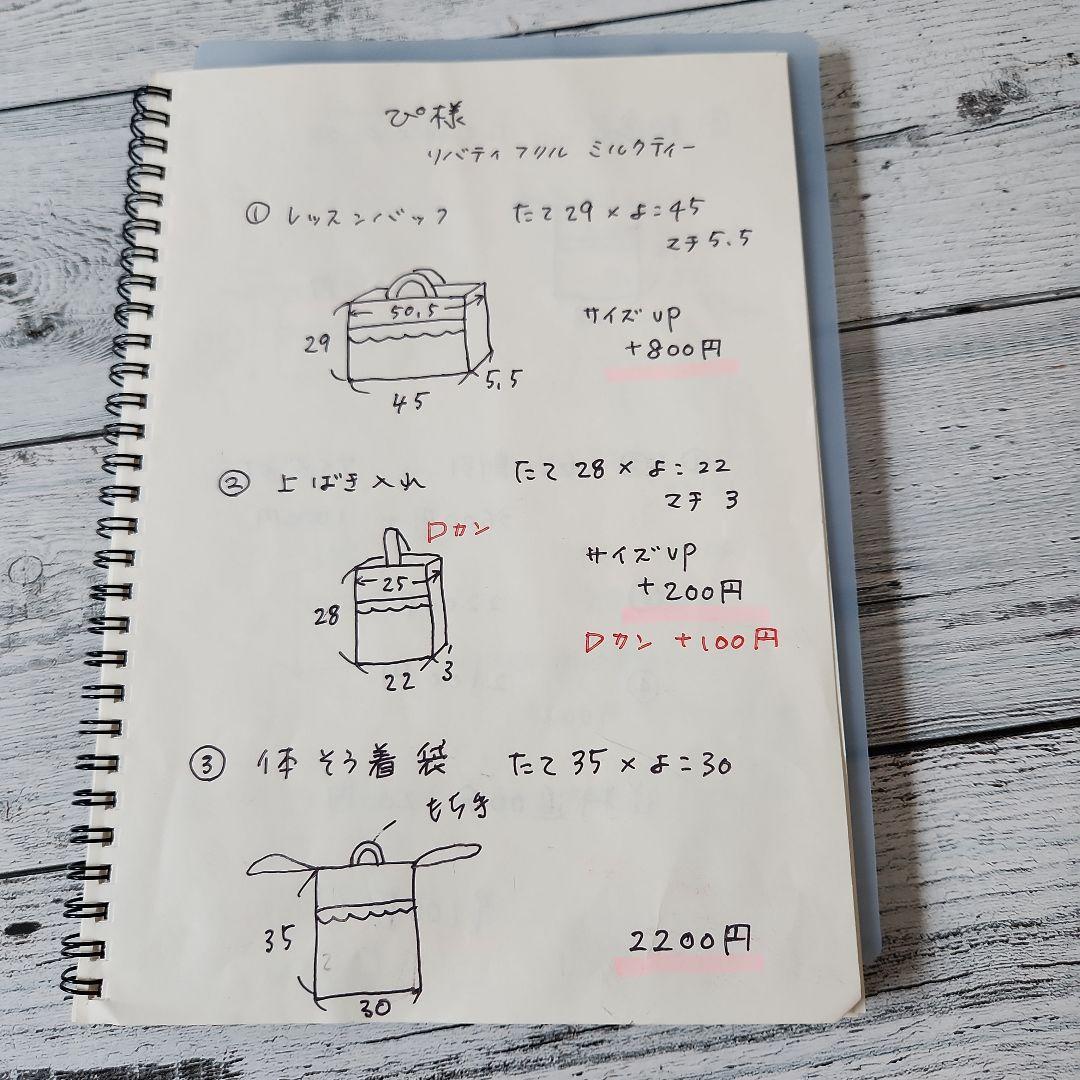 ぴ様
リバティフリル ミルクティー
① レッスンバック たて29×よこ45
マチ5.5
50.5
29
45
5.5
サイズup
+800円
② 上ばき入れ たて28×よこ22
マチ 3
Dカン
25
28
22
3
サイズup
+200円
Dカン +100円
③ 体そう着袋 たて35×よこ30
もち手
35
30
2200円